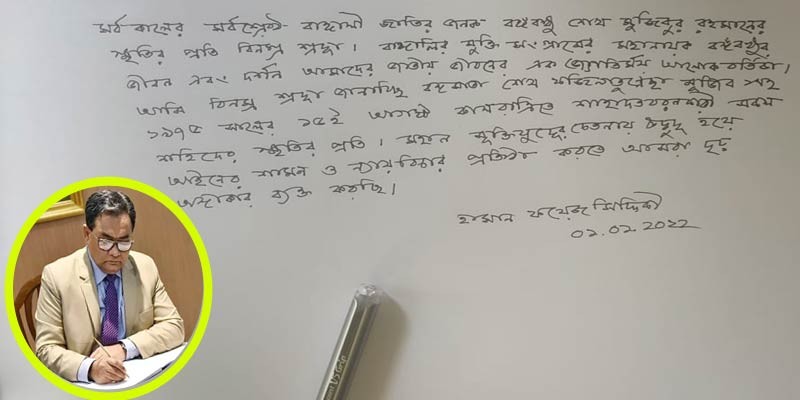 সর্ব কালের সর্বশ্রেষ্ঠ বাঙ্গালী জাতির জনক বঙ্গবন্ধু শেখ মুজিবুর রহমানের
স্মৃতির প্রতি বিনম্র শ্রদ্ধা। বাঙ্গালির মুক্তি সংগ্রামের মহানায়ক বঙ্গবন্ধুর
জীবন এবং দর্শন আমাদের জাতীয় জীবনের এক জ্যোতির্ময় আলোকবর্তিকা।
আমি বিনম্র শ্রদ্ধা জানাচ্ছি বঙ্গমাতা শেখ ফজিলাতুন্নেছা মুজিব সহ
১৯৭৫ সালের ১৫ই আগষ্ট কালরাত্রিতে শাহাদতবরনকারী সকল
শহিদের স্মৃতির প্রতি। মহান মুক্তিযুদ্ধের চেতনায় উদ্বুদ্ধ হয়ে
আইনের শাসন ও ন্যায়বিচার প্রতিষ্ঠা করতে আমরা দৃঢ়
অঙ্গীকার ব্যক্ত করছি।
হাসান ফয়েজ সিদ্দিকী
০২.০২.2022
Grip